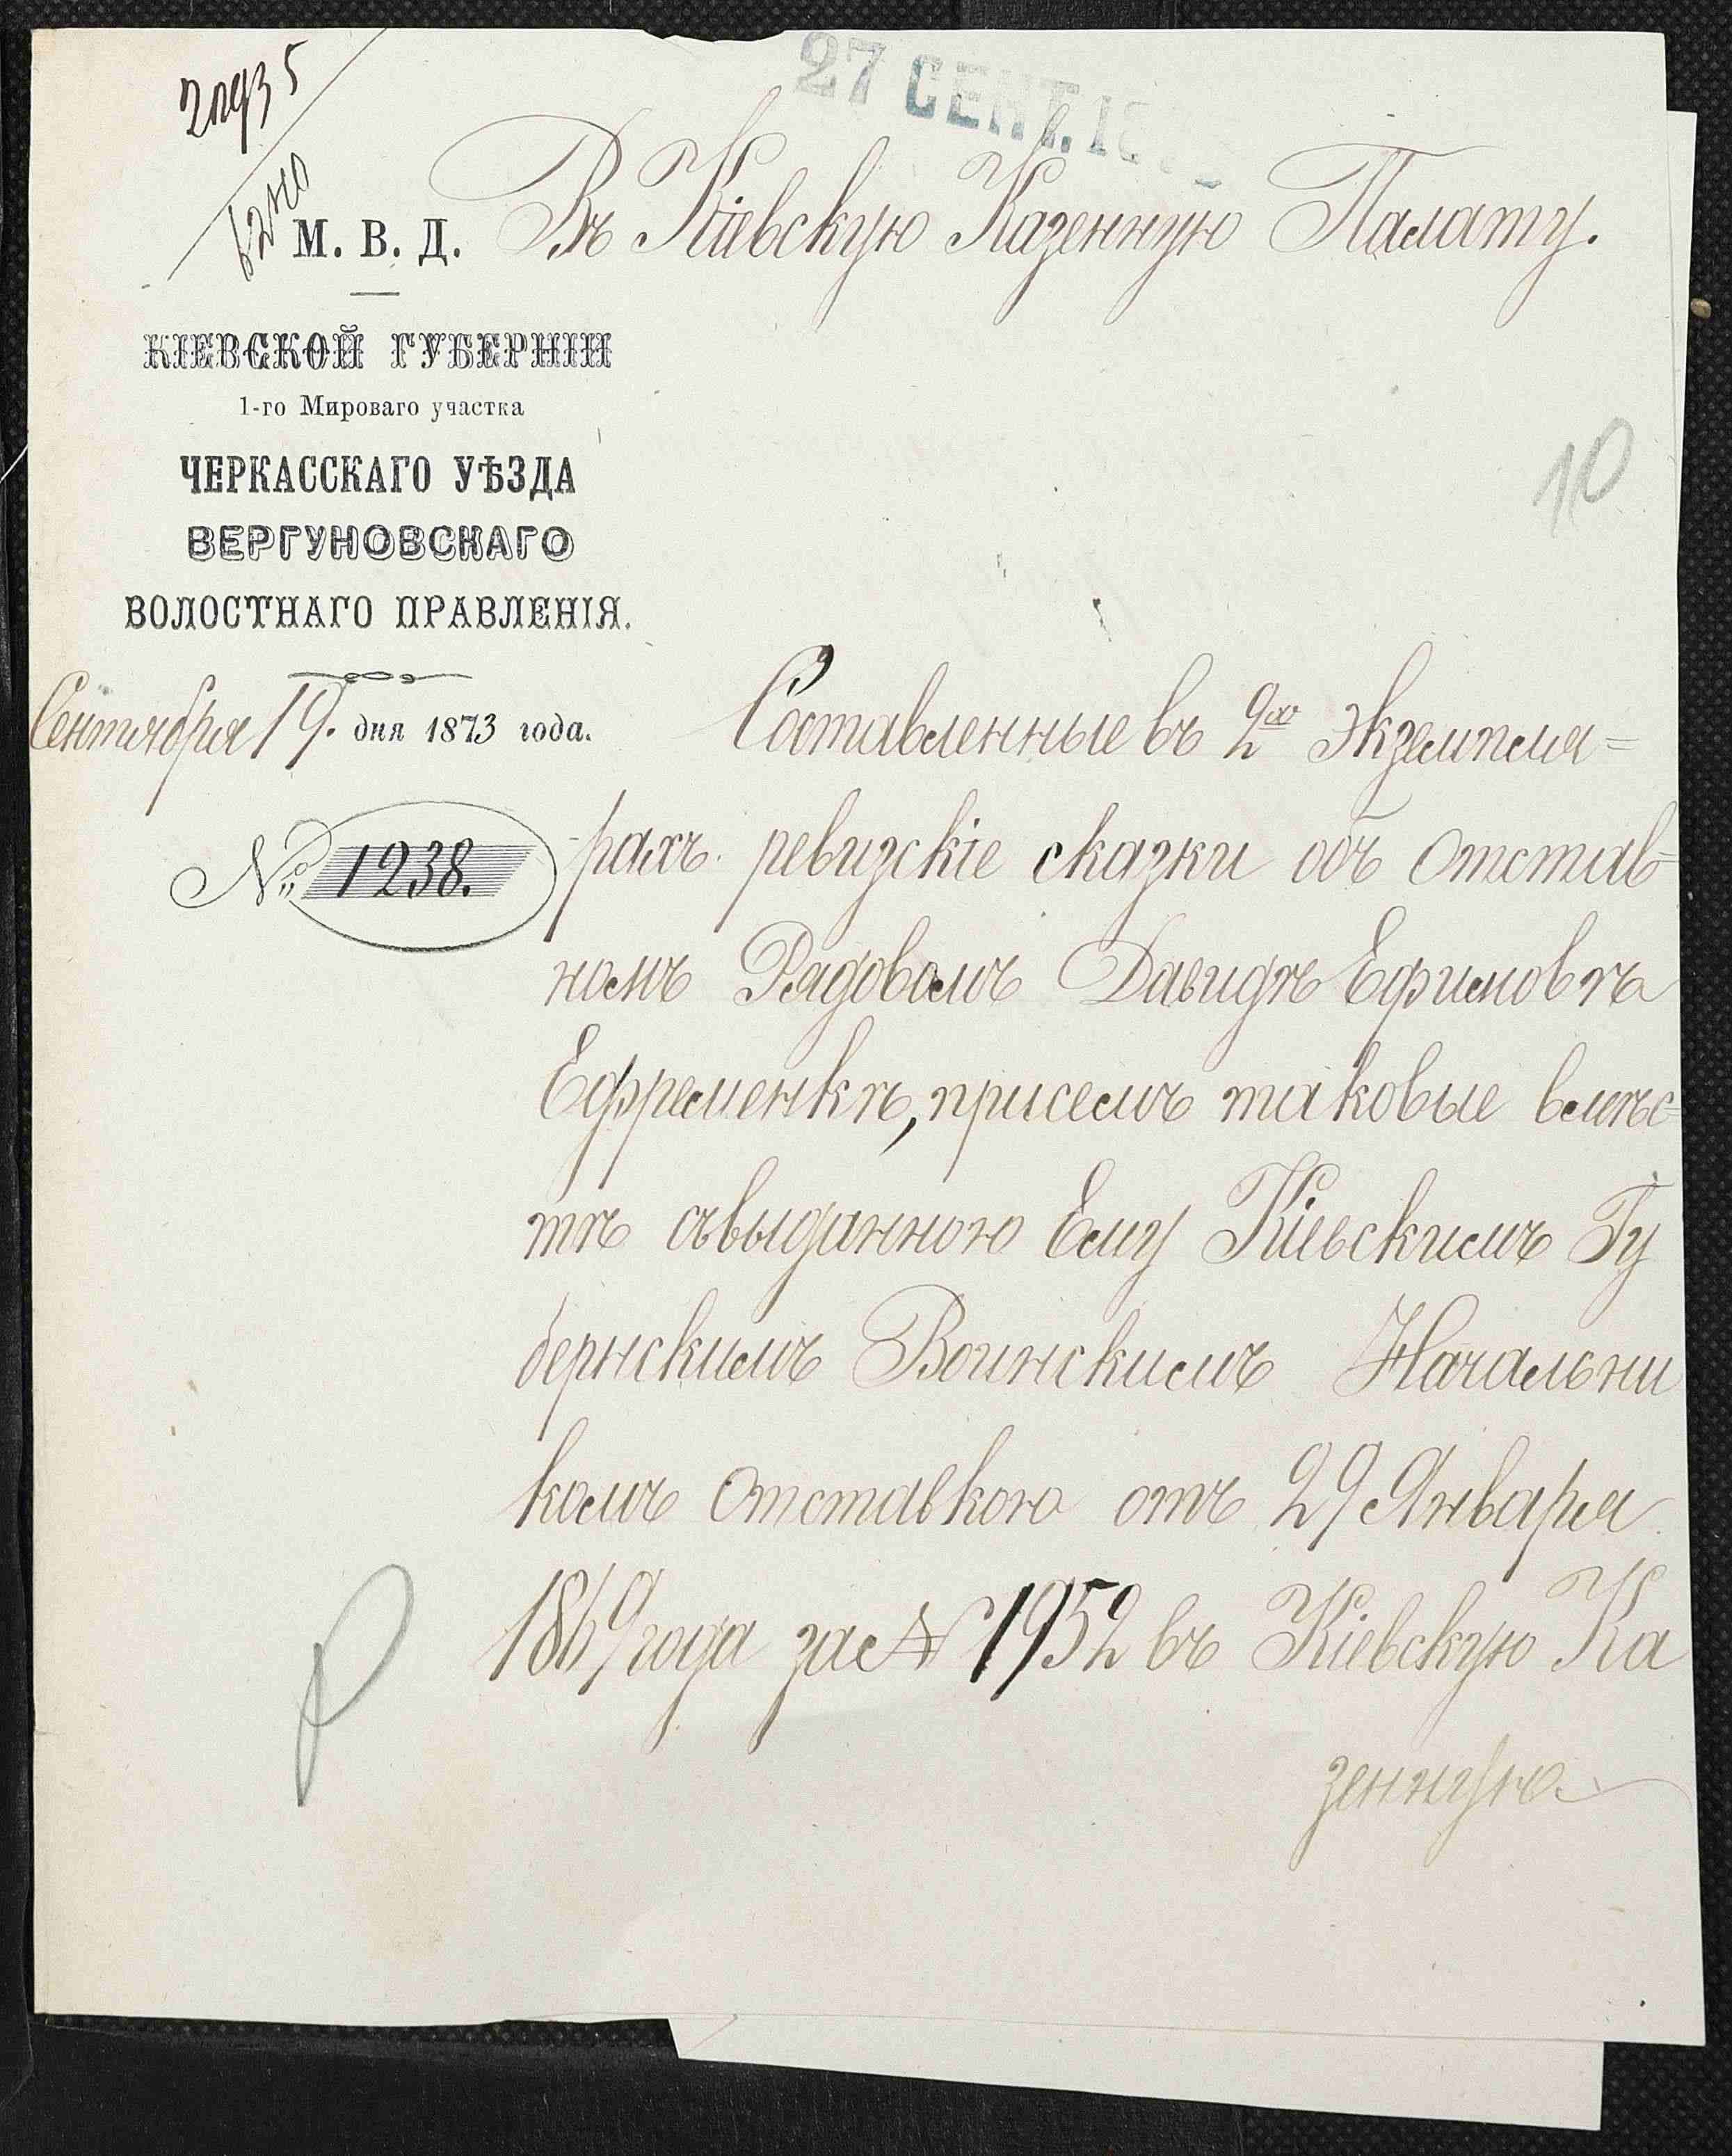 27 СЕНТ. 18
М. В. Д.
Въ Кіевскую Казенную Палату.
КІЕВСКОЙ ГУБЕРНІИ
1-го Мироваго участка
ЧЕРКАССКАГО УѢЗДА
ВЕРГУНОВСКАГО
ВОЛОСТНАГО ПРАВЛЕНІЯ.
Сентября 19. дня 1873 года.
№ 1238.
10
Составленные въ 2хъ экземпля=
рахъ ревизскіе сказки объ отстав=
номъ Рядовомъ Давидѣ Ефимовѣ
Ефременкѣ, присемъ таковые вмѣс=
тѣ съвыданною Ему Кіевскимъ Гу
бернскимъ Воинскимъ Начальни
комъ отставкою отъ 29 Января
1869 года за № 1952 въ Кіевскую Ка
зенную